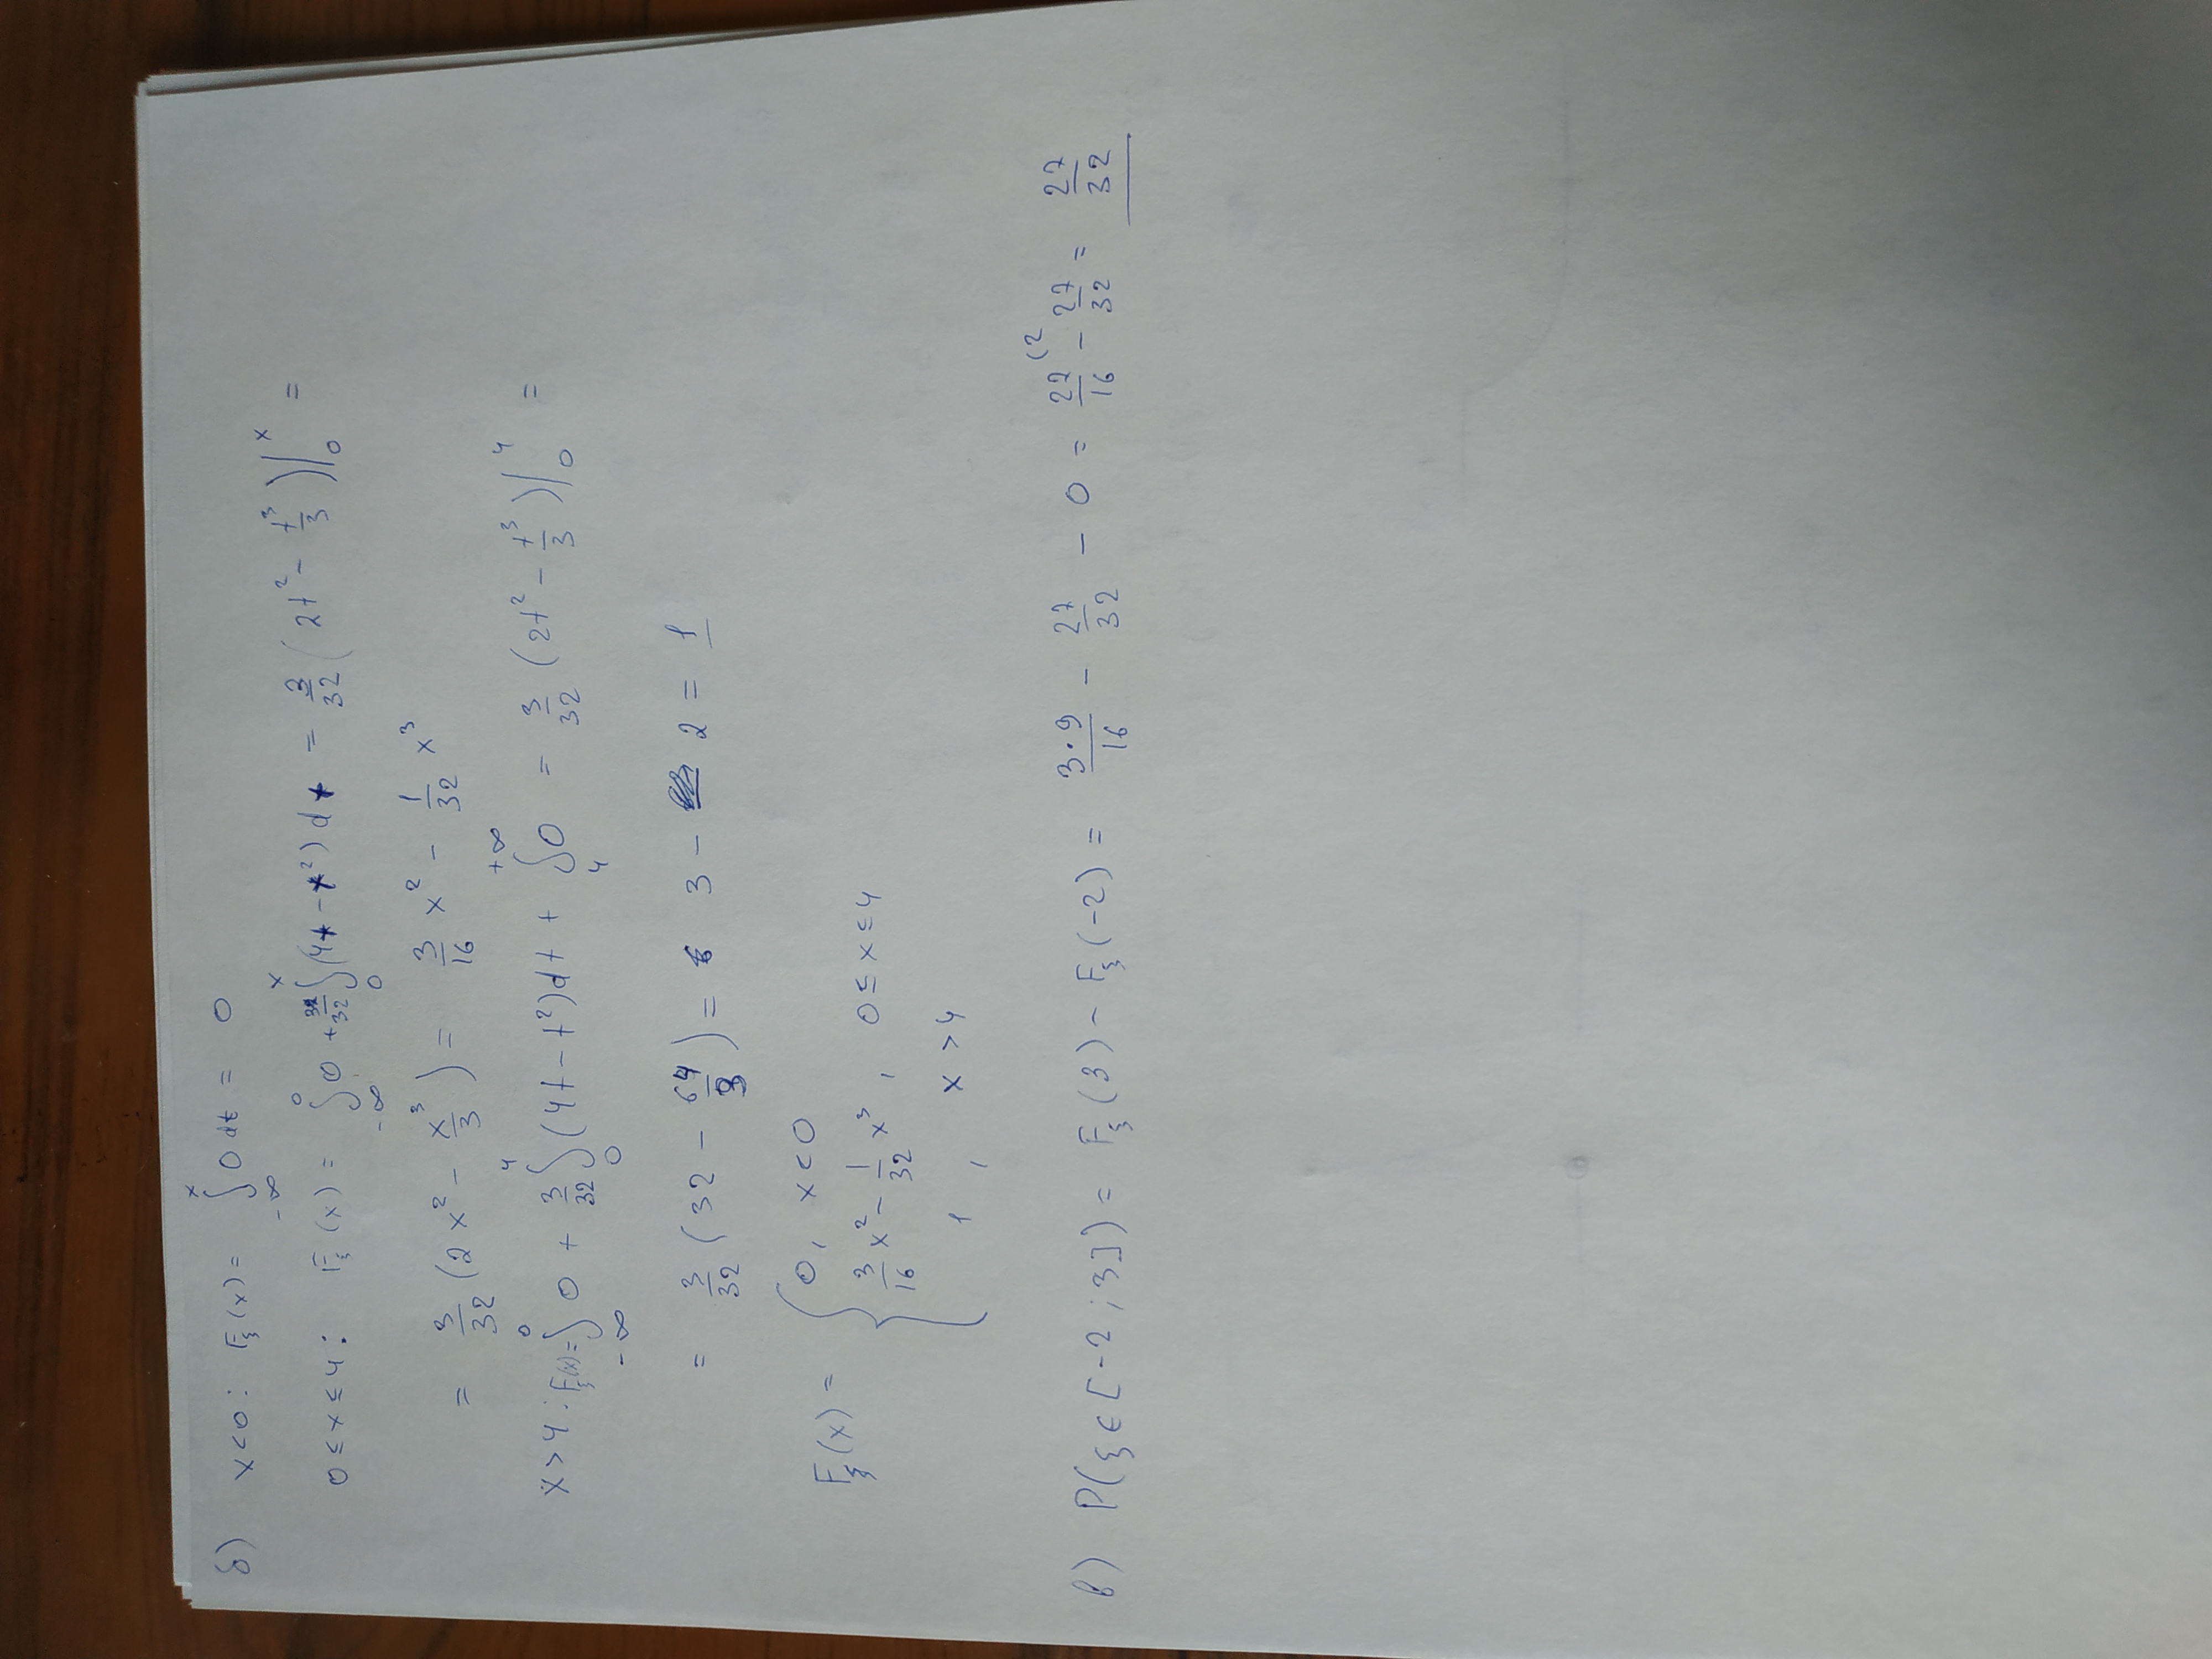 б) x<0: F_ξ(x) = ∫_{-∞}^{x} 0 dt = 0
0 ≤ x ≤ 4: F_ξ(x) = ∫_{-∞}^{0} 0 + 3/32 ∫_{0}^{x} (4t - t²) dt = 3/32 (2t² - t³/3)|_{0}^{x} =
= 3/32 (2x² - x³/3) = 3/16 x² - 1/32 x³
x > 4: F_ξ(x) = ∫_{-∞}^{0} 0 + 3/32 ∫_{0}^{4} (4t - t²) dt + ∫_{4}^{+∞} 0 = 3/32 (2t² - t³/3)|_{0}^{4} =
= 3/32 (32 - 64/3) = 3 - 2 = 1
F_ξ(x) = {
0, x < 0
3/16 x² - 1/32 x³, 0 ≤ x ≤ 4
1, x > 4
в) P(ξ ∈ [-2; 3]) = F_ξ(3) - F_ξ(-2) = 3·9/16 - 27/32 - 0 = 27/16 (2 - 27/32 = 27/32